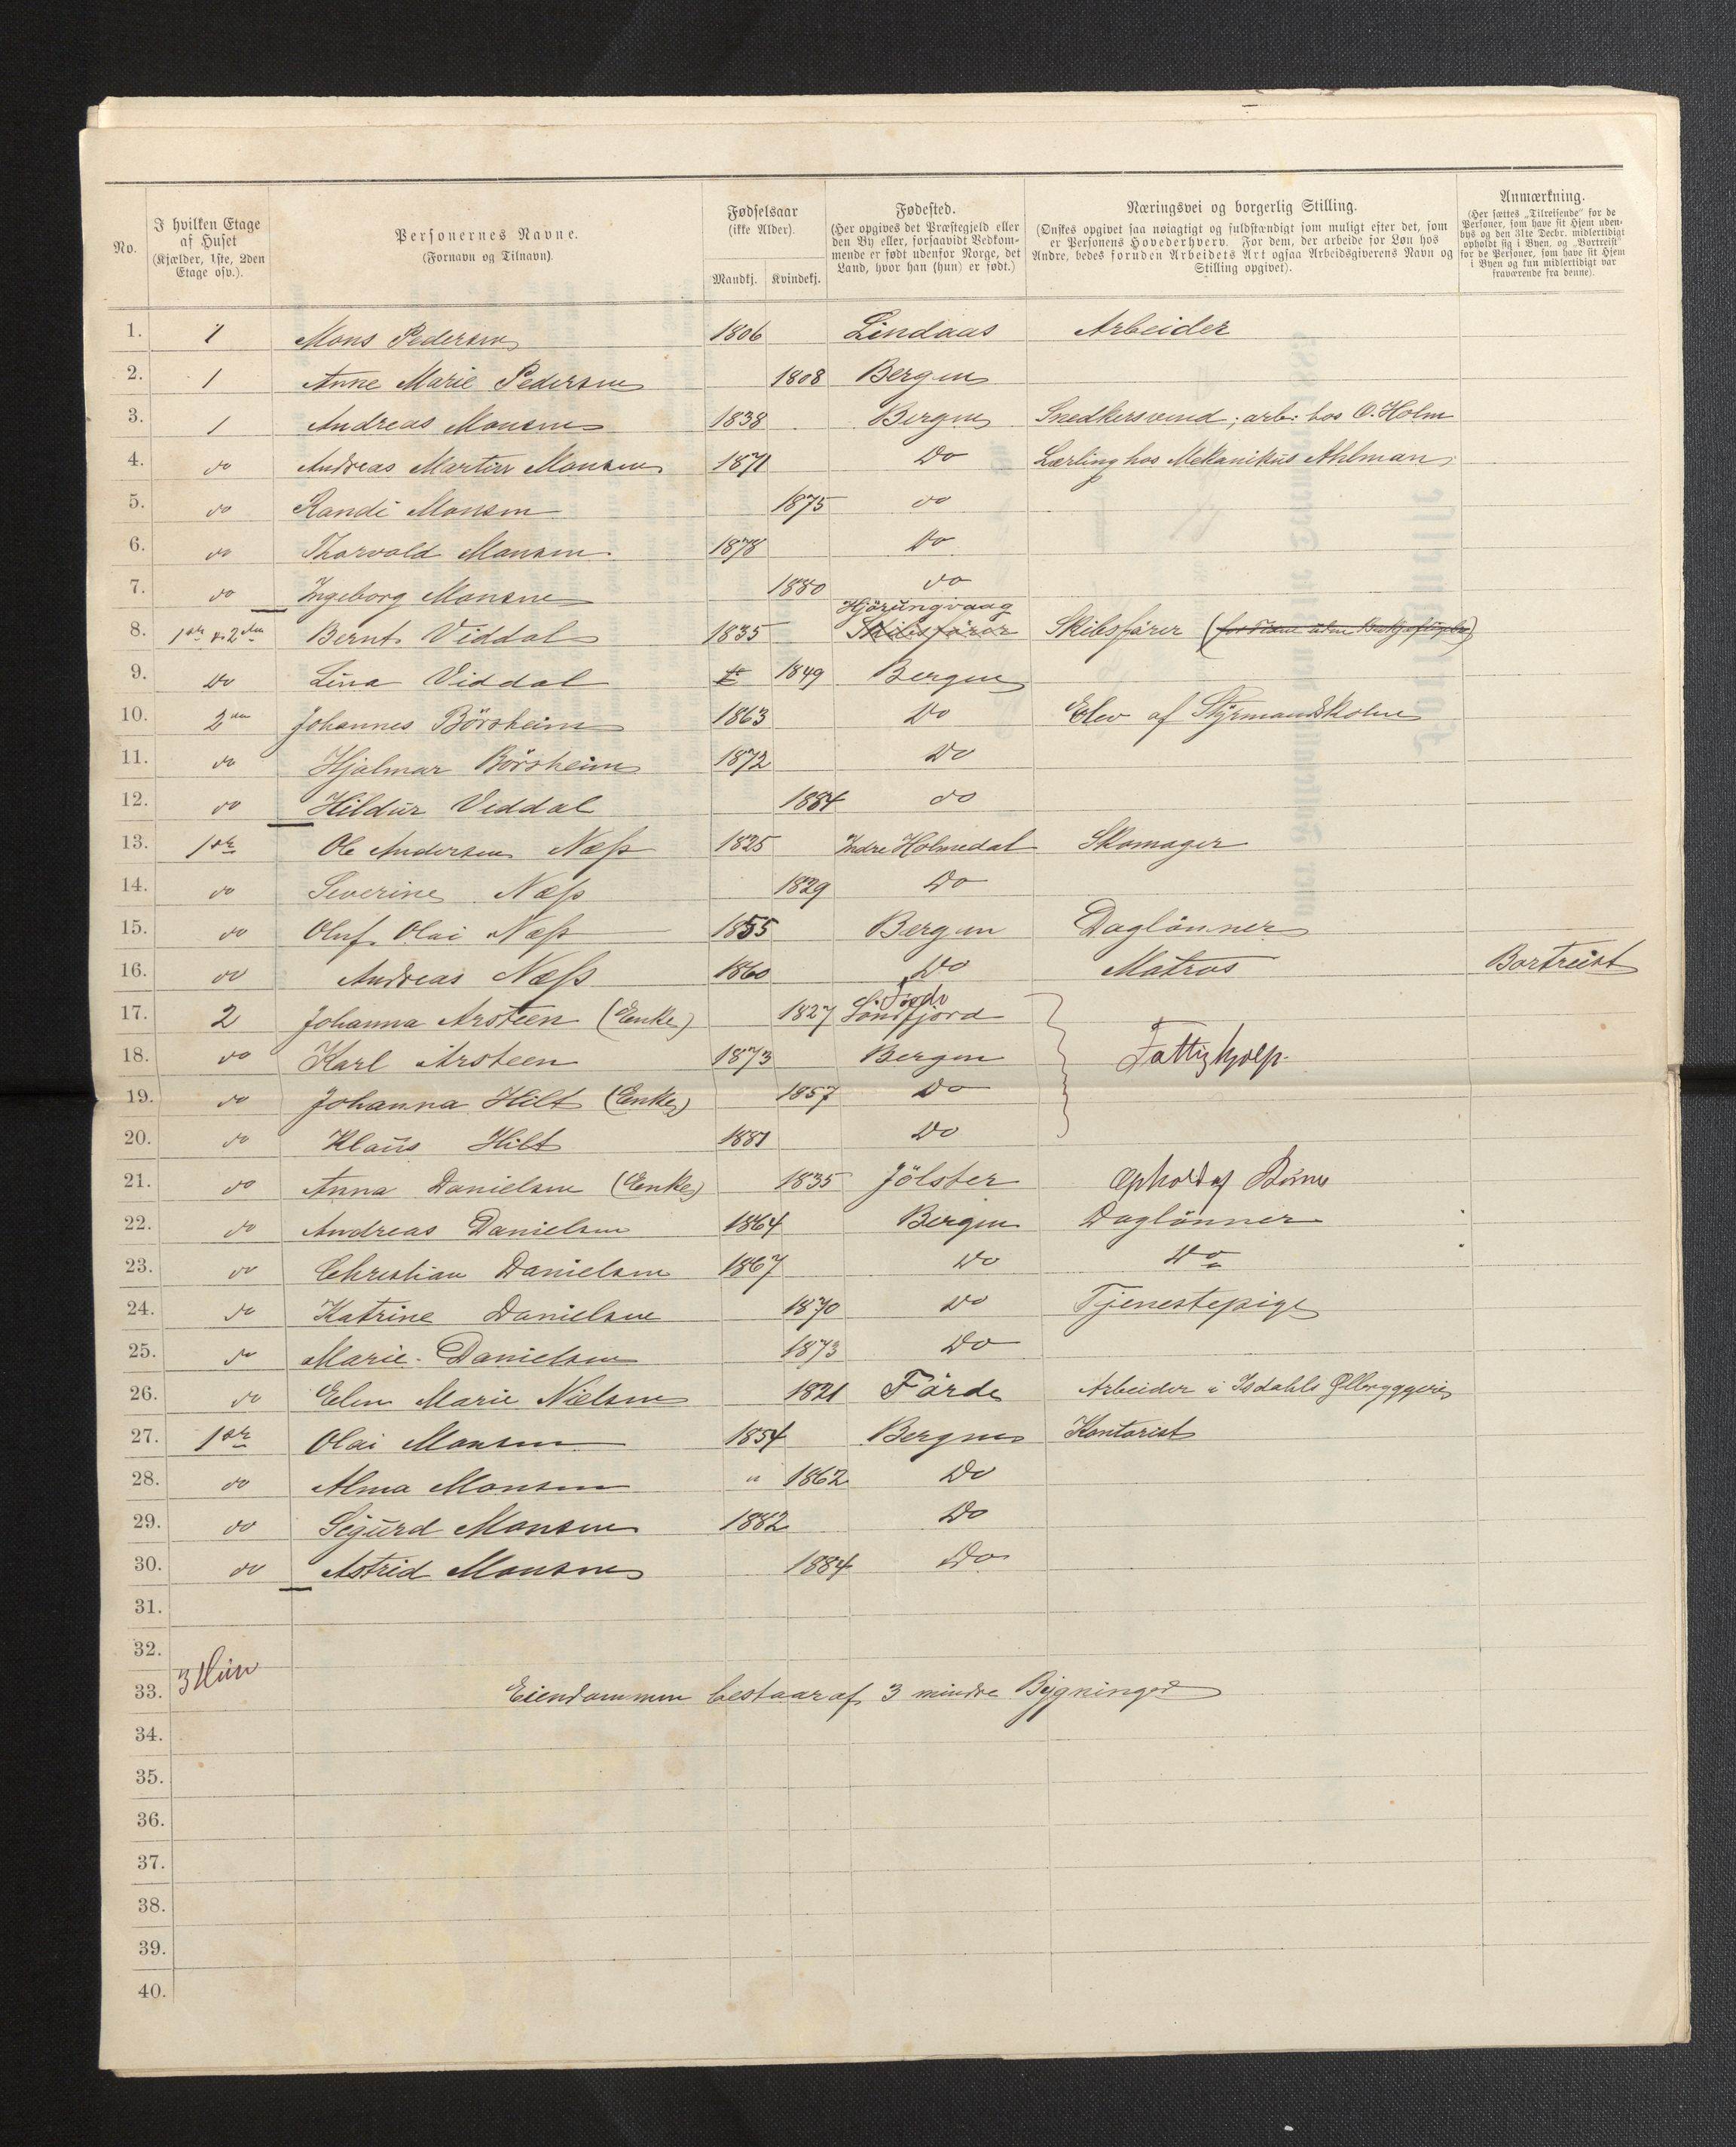 No.
I hvilken Etage
af Huset
(Kjælder, 1ste, 2den
Etage osv.).
Personernes Navne.
(Fornavn og Tilnavn).
Fødselsaar
(ikke Alder).
Mandkj. Kvindekj.
Fødested.
(Her opgives det Præstegjeld eller
den By eller, forsaavidt Vedkom-
mende er født udenfor Norge, det
Land, hvor han (hun) er født.)
Næringsvei og borgerlig Stilling.
(Ønskes opgivet saa nøiagtigt og fuldstændigt som muligt efter det, som
er Personens Hovederhverv. For dem, der arbeide for Løn hos
Andre, bedes foruden Arbeidets Art ogsaa Arbeidsgiverens Navn og
Stilling opgivet).
Anmærkning.
(Her sættes „Tilreisende" for de
Personer, som have sit Hjem uden-
bys og den 31te Decbr. midlertidigt
opholdt sig i Byen, og „Bortreist"
for de Personer, som have sit Hjem
i Byen og kun midlertidigt var
fraværende fra denne).
1. 1 Mons Pedersen 1806 Lindaas Arbeider
2. 1 Anne Marie Pedersen 1808 Bergen
3. 1 Andreas Monsen 1838 Bergen Snedkersvend; arb: hos O. Holm
4. do Andreas Martin Monsen 1871 Do Lærling hos Mekanikus Ahlman
5. do Randi Monsen 1875 do
6. do Thorvald Monsen 1878 Do
7. do Ingeborg Monsen 1880 do
Hjörungvaag
8. 1ste & 2den Bernt Viddal 1835 Skibsfører Skibsfører
9. Do Lina Viddal 1849 Bergen
10. 2den Johannes Börsheim 1863 Do Elev af Styrmandskolen
11. do Hjalmar Börsheim 1872 Do
12. do Hildur Viddal 1884 do
13. 1ste Ole Andersen Næss 1825 Indre Holmedal Skomager
14. do Severine Næss 1829 Do
15. do Oluf Olai Næss 1855 Bergen Daglönner
16. do Andreas Næss 1860 Do Matros Bortreist
Förde
17. 2 Johanna Arsteen (Enke) 1827 Söndfjord
18. do Karl Arsteen 1873 Bergen Fattighjælp
19. do Johanna Hilt (Enke) 1857 Do
20. do Klaus Hilt 1881 Do
21. do Anna Danielsen (Enke) 1835 Jölster Ophold af Börn
22. do Andreas Danielsen 1864 Bergen Daglönner
23. do Christian Danielsen 1867 Do Do
24. do Katrine Danielsen 1870 Do Tjenestepige
25. do Marie Danielsen 1873 Do
26. do Elen Marie Nielsen 1821 Förde Arbeider i Isdahls Ølbryggeri
27. 1ste Olai Monsen 1854 Bergen Kontorist
28. do Alma Monsen " 1862 Do
29. do Sigurd Monsen 1882 Do
30. do Astrid Monsen 1884 Do
31.
32.
3 Huse
33. Eiendommen bestaar af 3 mindre Bygninger
34.
35.
36.
37.
38.
39.
40.